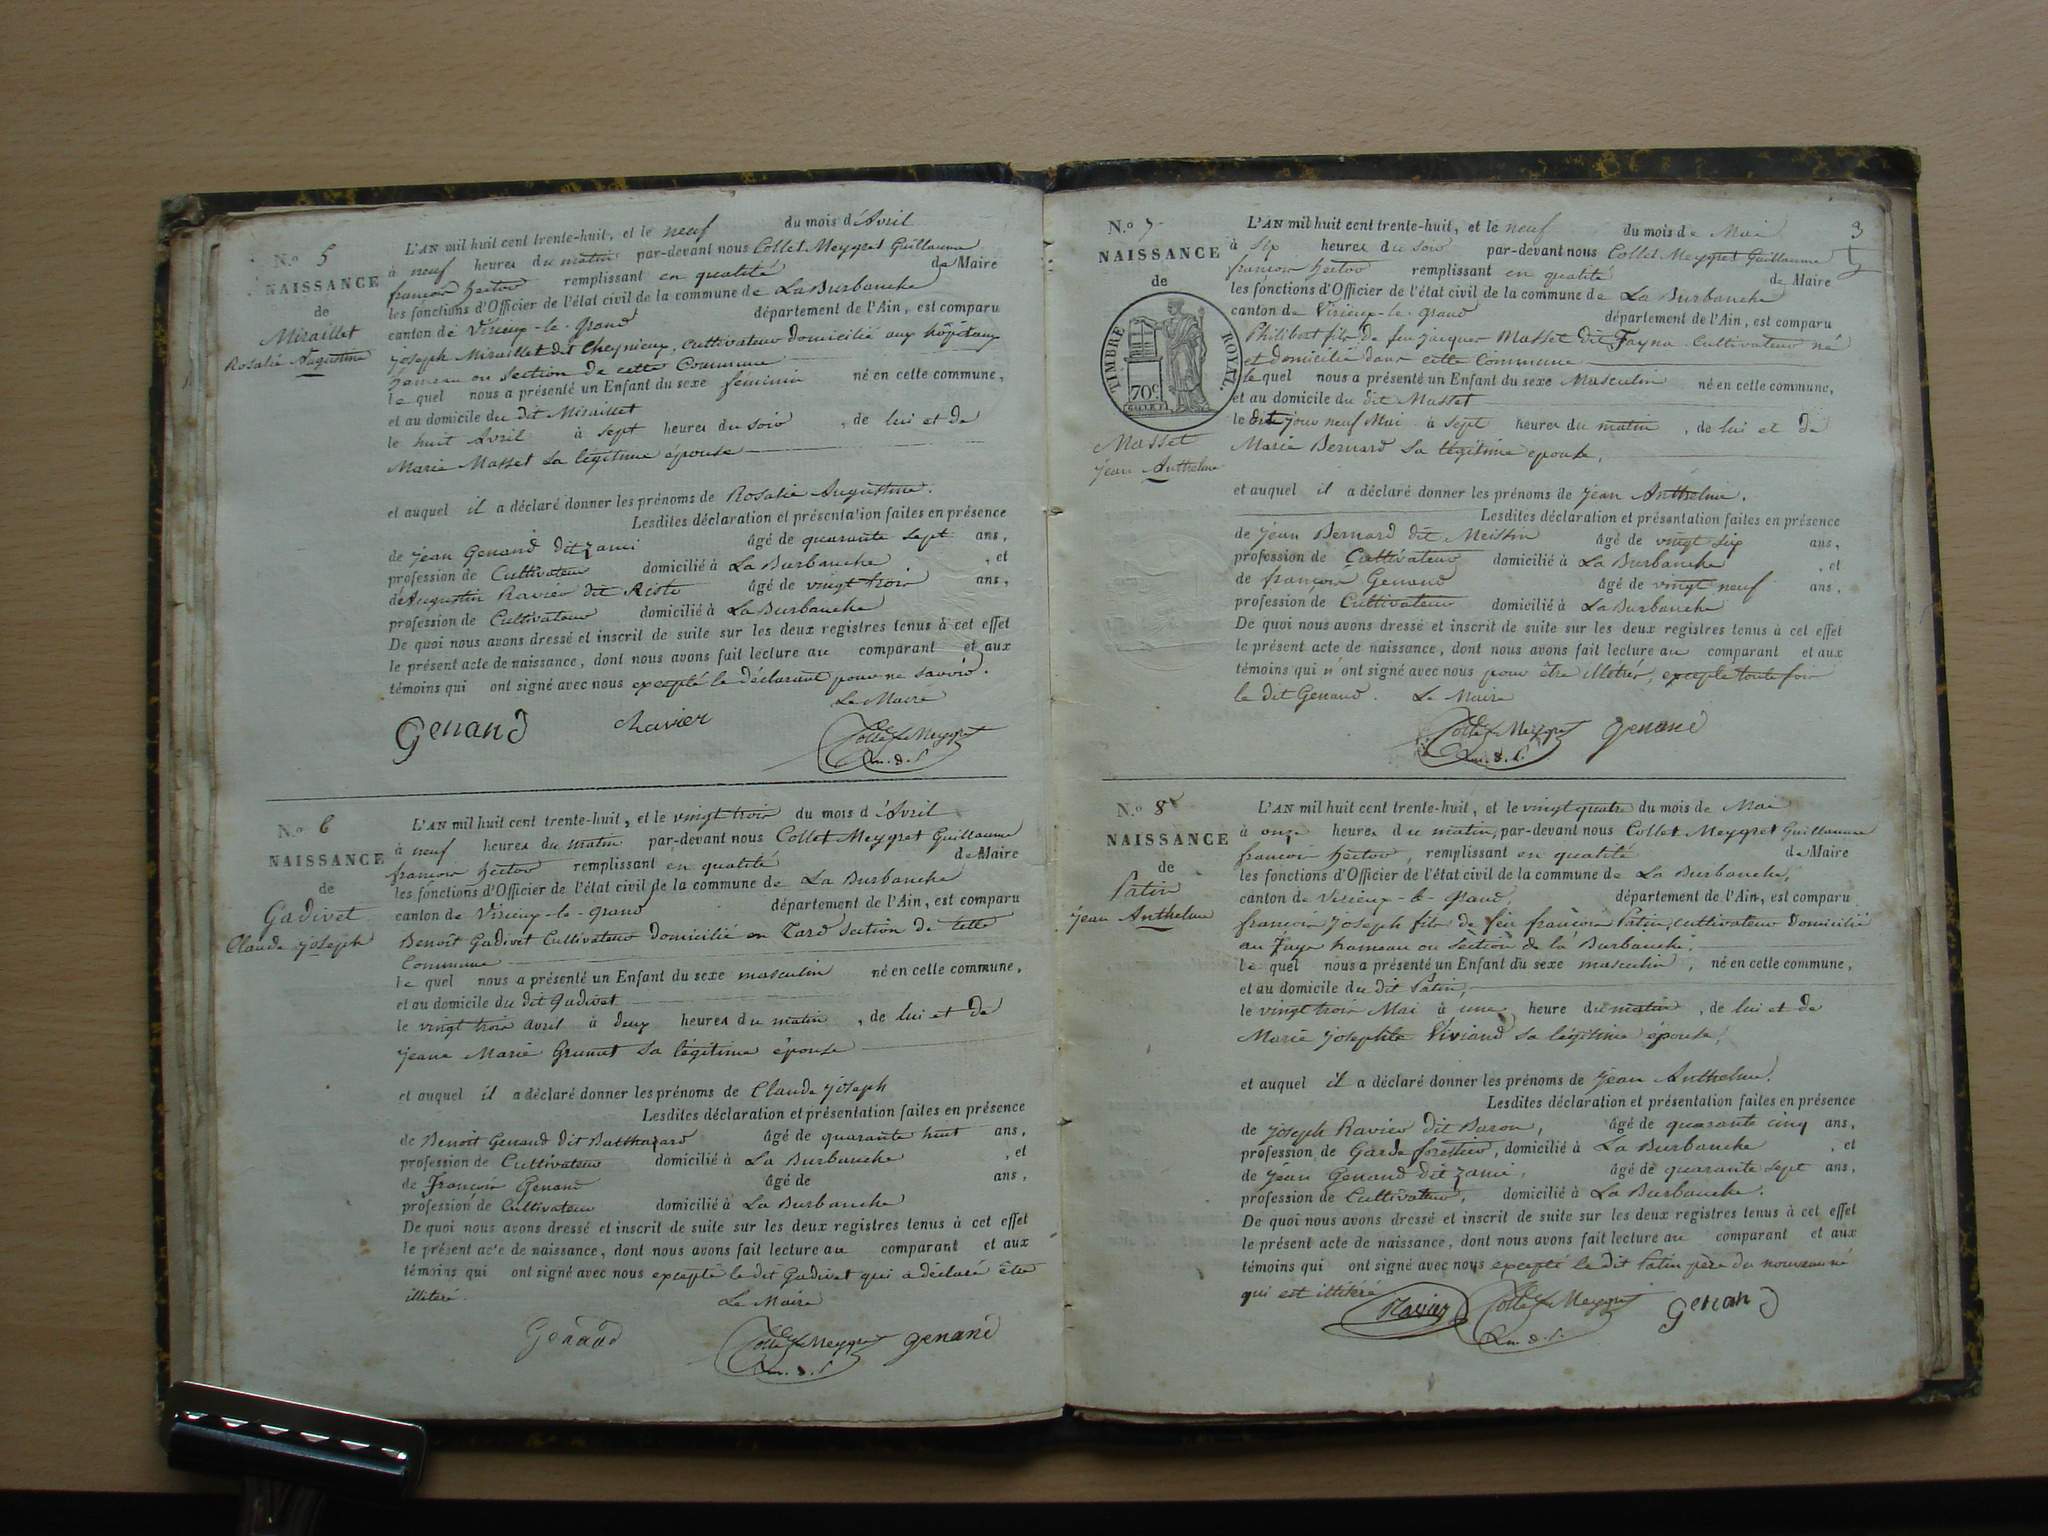 N.o 5
NAISSANCE
de
Miraillet
Rosalie Augustine
L'AN mil huit cent trente-huit, et le neuf du mois d'Avril
à neuf heures du matin par-devant nous Collet Meygret Guillaume
françois hector remplissant en qualité de Maire
les fonctions d'Officier de l'état civil de la commune de La Burbanche
canton de Virieux-le-grand département de l'Ain, est comparu
joseph Miraillet dit Cheynieux, cultivateur domicilié aux hôpitaux
hameau ou section de cette Commune
le quel nous a présenté un Enfant du sexe féminin né en cette commune,
et au domicile du dit Miraillet
le huit Avril à sept heures du soir, de lui et de
Marie Masset sa légitime épouse
et auquel il a déclaré donner les prénoms de Rosalie Augustine.
Lesdites déclaration et présentation faites en présence
de jean Genand dit zami âgé de quarante sept ans,
profession de Cultivateur domicilié à La Burbanche, et
de Augustin Ravier dit Riste âgé de vingt trois ans,
profession de Cultivateur domicilié à La Burbanche
De quoi nous avons dressé et inscrit de suite sur les deux registres tenus à cet effet
le présent acte de naissance, dont nous avons fait lecture au comparant et aux
témoins qui ont signé avec nous excepté le déclarant pour ne savoir.
Le Maire
Genand Ravier Collet Meygret
N.o 6
NAISSANCE
de
Gadivet
Claude joseph
L'AN mil huit cent trente-huit, et le vingt trois du mois d'Avril
à neuf heures du matin par-devant nous Collet Meygret Guillaume
françois hector remplissant en qualité de Maire
les fonctions d'Officier de l'état civil de la commune de La Burbanche
canton de Virieux-le-grand département de l'Ain, est comparu
Benoît Gadivet Cultivateur domicilié en Tard section de cette
Commune
le quel nous a présenté un Enfant du sexe masculin né en cette commune,
et au domicile du dit Gadivet
le vingt trois avril à deux heures du matin, de lui et de
jeane Marie Grumet sa légitime épouse
et auquel il a déclaré donner les prénoms de Claude joseph
Lesdites déclaration et présentation faites en présence
de Benoit Genand dit Balthazard âgé de quarante huit ans,
profession de Cultivateur domicilié à La Burbanche, et
de françois Genand âgé de ans,
profession de Cultivateur domicilié à La Burbanche
De quoi nous avons dressé et inscrit de suite sur les deux registres tenus à cet effet
le présent acte de naissance, dont nous avons fait lecture au comparant et aux
témoins qui ont signé avec nous excepté le dit Gadivet qui a déclaré être
illitéré.
Le Maire
Genand Collet Meygret genand
3
N.o 7
NAISSANCE
de
TIMBRE ROYAL
70c
Masset
jean Anthelme
L'AN mil huit cent trente-huit, et le neuf du mois de Mai
à six heures du soir par-devant nous Collet Meygret Guillaume
françois hector remplissant en qualité de Maire
les fonctions d'Officier de l'état civil de la commune de La Burbanche
canton de Virieux-le-grand département de l'Ain, est comparu
Philibert fils de feu jacques Masset dit Fayna Cultivateur né
et domicilié dans cette Commune
le quel nous a présenté un Enfant du sexe Masculin né en cette commune,
et au domicile du dit Masset
le dit jour neuf Mai à sept heures du matin, de lui et de
Marie Bernard sa légitime epouse,
et auquel il a déclaré donner les prénoms de jean Anthelme.
Lesdites déclaration et présentation faites en présence
de jean Bernard dit âgé de vingt six ans,
profession de Cultivateur domicilié à La Burbanche, et
de françois Genand âgé de vingt neuf ans,
profession de Cultivateur domicilié à La Burbanche
De quoi nous avons dressé et inscrit de suite sur les deux registres tenus à cet effet
le présent acte de naissance, dont nous avons fait lecture au comparant et aux
témoins qui n'ont signé avec nous pour être illétrés, excepté toutefois
le dit Genand. Le Maire
Collet Meygret genand
N.o 8
NAISSANCE
de
Patin
jean Anthelme
L'AN mil huit cent trente-huit, et le vingt quatre du mois de Mai
à onze heures du matin, par-devant nous Collet Meygret Guillaume
françois hector, remplissant en qualité de Maire
les fonctions d'Officier de l'état civil de la commune de La Burbanche,
canton de Virieux-le-grand, département de l'Ain, est comparu
françois joseph fils de feu françois Patin, cultivateur domicilié
au Faye hameau ou section de la Burbanche;
le quel nous a présenté un Enfant du sexe masculin, né en cette commune,
et au domicile du dit Patin,
le vingt trois Mai à une heure du matin, de lui et de
Marie josephte Viviand sa légitime épouse,
et auquel il a déclaré donner les prénoms de jean Anthelme.
Lesdites déclaration et présentation faites en présence
de joseph Ravier dit Baron, âgé de quarante cinq ans,
profession de Garde forestier, domicilié à La Burbanche, et
de jean Genand dit zami, âgé de quarante sept ans,
profession de Cultivateur, domicilié à La Burbanche.
De quoi nous avons dressé et inscrit de suite sur les deux registres tenus à cet effet
le présent acte de naissance, dont nous avons fait lecture au comparant et aux
témoins qui ont signé avec nous excepté le dit Patin père du nouveau né
qui est illitéré
Ravier Collet Meygret Genand